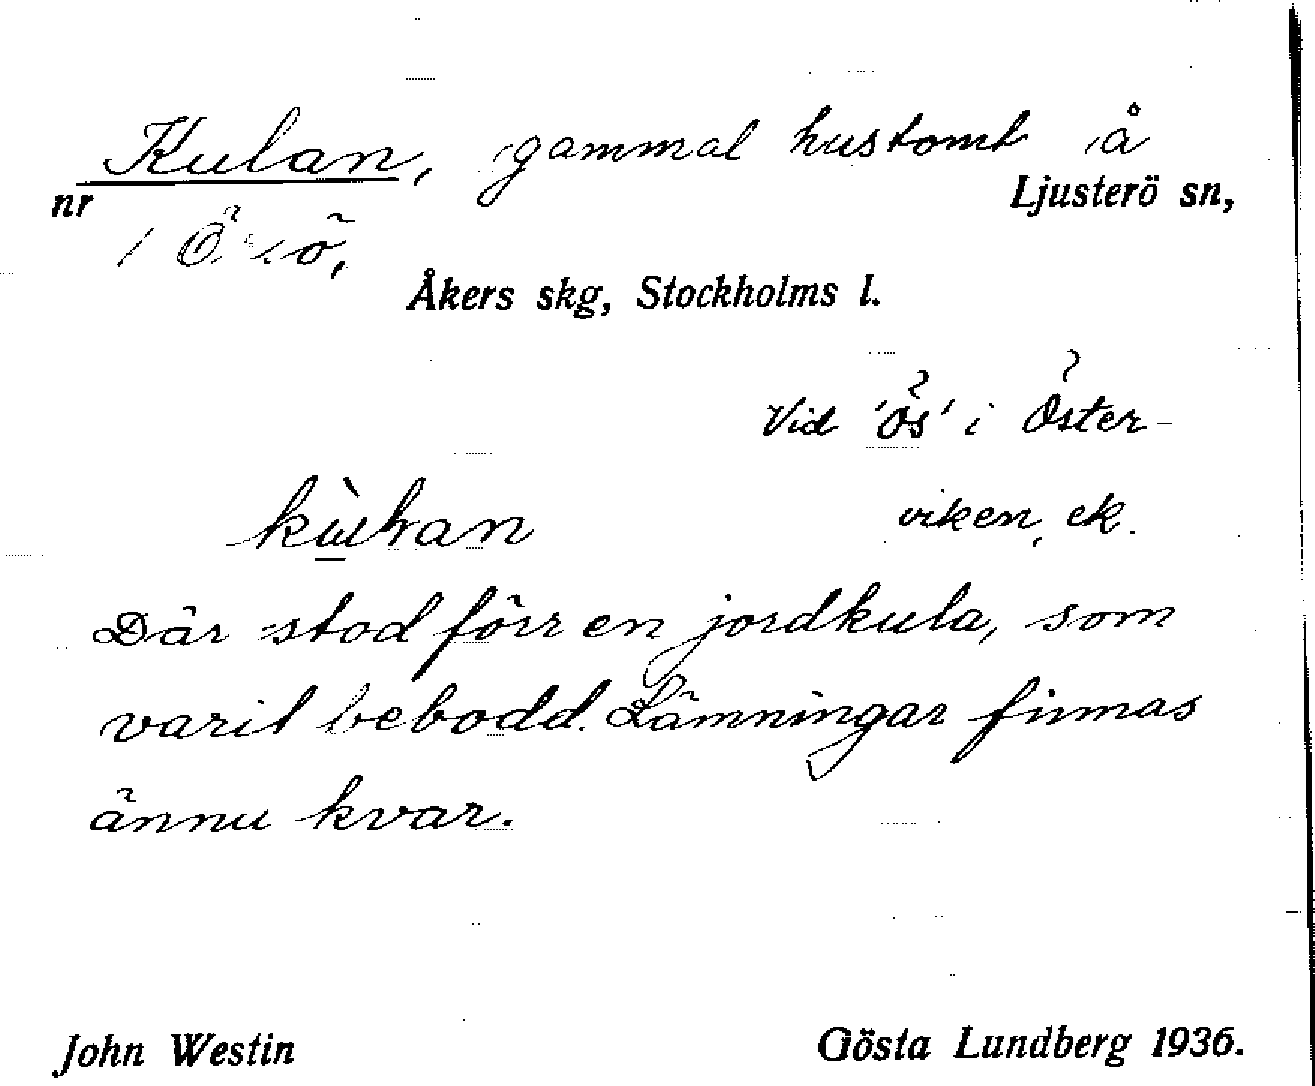 Kulan, gammal hustomt å
nr Ljusterö sn,
Åkers skg, Stockholms l.
Vid 'ös' i Öster-
viken, ek.
Där stod förr en jordkula, som
varit bebodd. Lämningar finnas
ännu kvar.
John Westin Gösta Lundberg 1936.